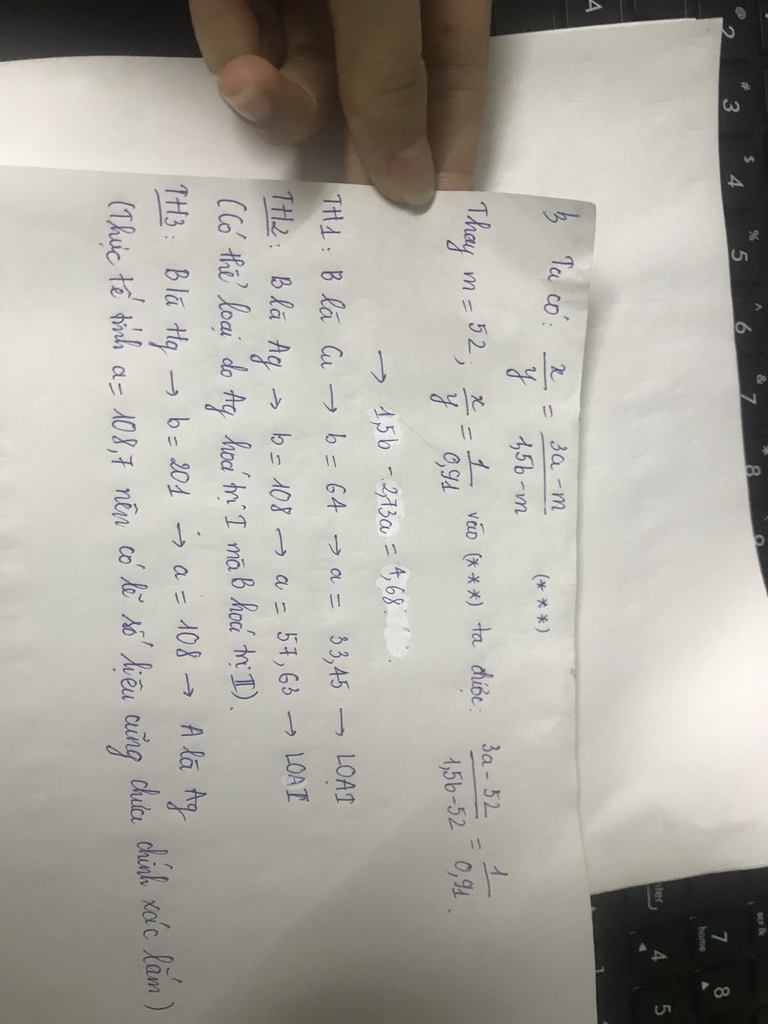 b Ta có: x/y = (3a-m)/(1,5b-m) (***)
Thay m = 52; x/y = 1/0,91 vào (***) ta được: (3a-52)/(1,5b-52) = 1/0,91.
→ 1,5b - 2,73a = 4,68
TH1: B là Cu → b = 64 → a = 33,45 → LOẠI
TH2: B là Ag → b = 108 → a = 57,63 → LOẠI
(Có thể loại do Ag hoá trị I mà B hoá trị II).
TH3: B là Hg → b = 201 → a = 108 → A là Ag
(Thực tế tính a = 108,7 nên có lẽ số liệu cũng chưa chính xác lắm)
@ 2
# 3
$ 4
% 5
^ 6
& 7
* 8
9
A
scr lk
7 home
8
4
5
1